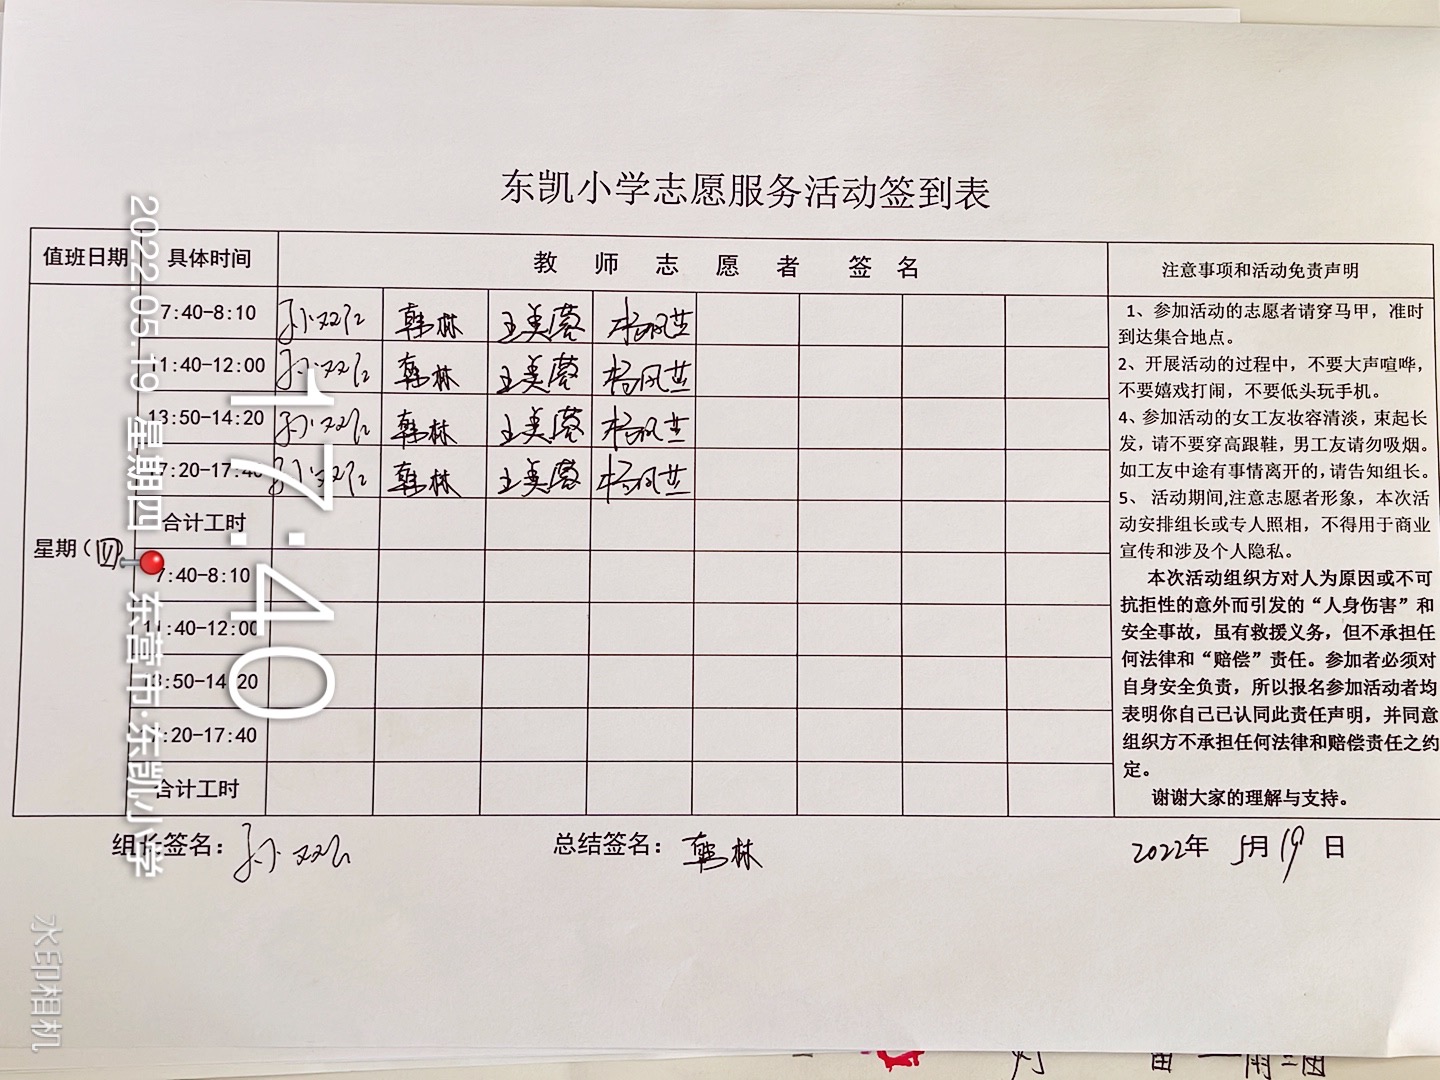 东凯小学志愿服务活动签到表
值班日期 具体时间 教师志愿者 签名 注意事项和活动免责声明
7:40-8:10 韩林 王美蓉 杨风芝
11:40-12:00 韩林 王美蓉 杨风芝
13:50-14:20 韩林 王美蓉 杨风芝
17:20-17:40 韩林 王美蓉 杨风芝
合计工时
星期(四)
7:40-8:10
11:40-12:00
13:50-14:20
17:20-17:40
合计工时
1、参加活动的志愿者请穿马甲，准时
到达集合地点。
2、开展活动的过程中，不要大声喧哗，
不要嬉戏打闹，不要低头玩手机。
4、参加活动的女工友妆容清淡，束起长
发，请不要穿高跟鞋，男工友请勿吸烟。
如工友中途有事情离开的，请告知组长。
5、 活动期间,注意志愿者形象，本次活
动安排组长或专人照相，不得用于商业
宣传和涉及个人隐私。
本次活动组织方对人为原因或不可
抗拒性的意外而引发的“人身伤害”和
安全事故，虽有救援义务，但不承担任
何法律和“赔偿”责任。参加者必须对
自身安全负责，所以报名参加活动者均
表明你自己已认同此责任声明，并同意
组织方不承担任何法律和赔偿责任之约
定。
谢谢大家的理解与支持。
组长签名： 总结签名：韩林 2022年 5月19日
2022.05.19 星期四
东营市·东凯小学
17:40
水印相机